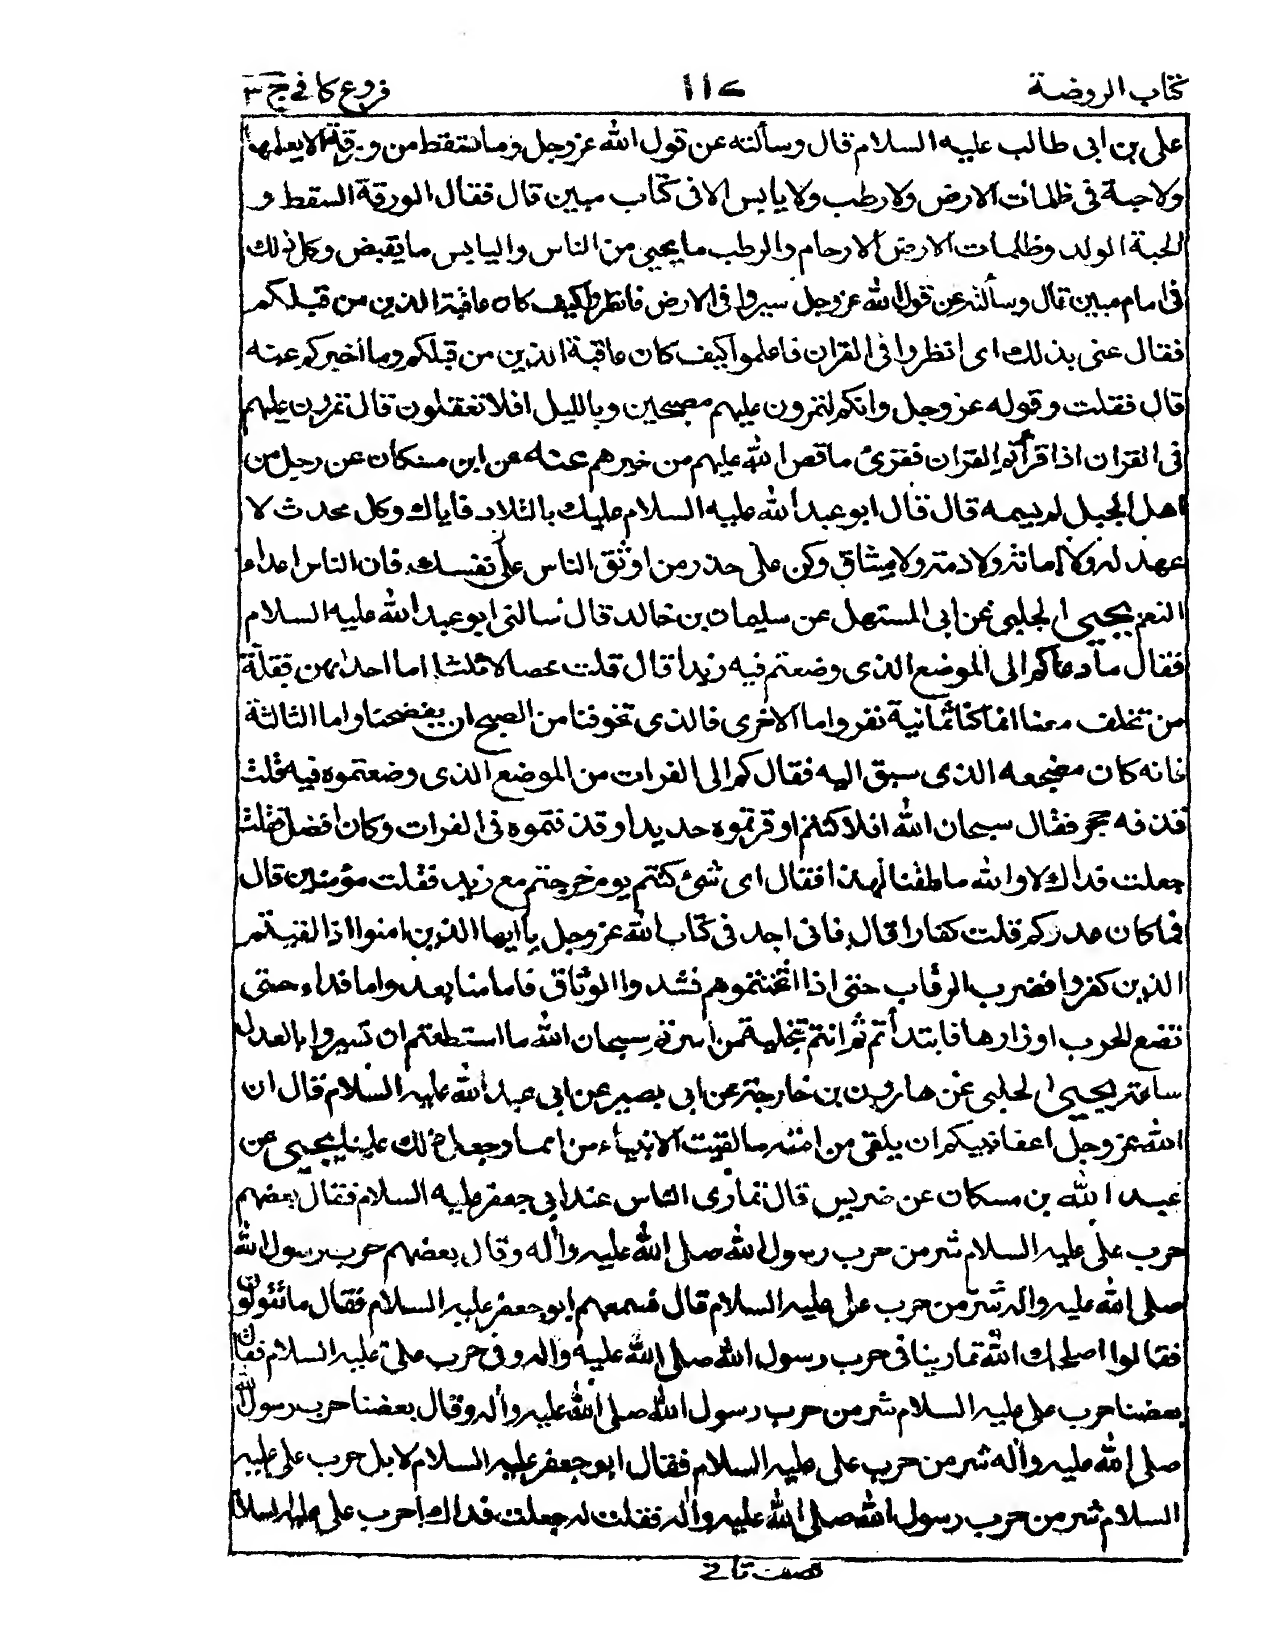 كتاب الروضة
١١٧
فروع كافي ج ٣
على بن ابى طالب عليه السلام قال وسألته عن قول الله عز وجل وما تسقط من ورقة الا يعلمها
ولا حبة فى ظلمات الارض ولا رطب ولا يابس الا فى كتاب مبين قال فقال الورقة السقط و
الحبة الولد وظلمات الارض الارحام والرطب ما يحيى من الناس واليابس ما يقبض وكل ذلك
فى امام مبين قال وسألته عن قول الله عز وجل سيروا فى الارض فانظروا كيف كان عاقبة الذين من قبلكم
فقال عنى بذلك اى انظروا فى القران فاعلموا كيف كان عاقبة الذين من قبلكم وما اخبركم عنه
قال فقلت وقوله عز وجل وانكم لتمرون عليهم مصبحين وبالليل افلا تعقلون قال تمرون عليهم
فى القران اذا قرأتم القران فقرئ ما قص الله عليهم من خبرهم عنه عن ابن مسكان عن رجل من
اهل الجبل لم يسمه قال قال ابو عبد الله عليه السلام عليك بالتلاد فاياك وكل محدث لا
عهد له ولا امانة ولا ذمة ولا ميثاق وكن على حذر من اوثق الناس على نفسك فان الناس اعداء
النعم يحيى الحلبى عن ابى المستهل عن سليمان بن خالد قال سالنى ابو عبد الله عليه السلام
فقال ما دعاكم الى الموضع الذى وضعتم فيه زيدا قال قلت خصال ثلث اما احداهن فقلة
من تخلف معنا انما كنا ثمانية نفر واما الاخرى فالذى تخوفنا من الصبح ان يفضحنا واما الثالثة
فانه كان مضجعه الذى سبق اليه فقال كم الى الفرات من الموضع الذى وضعتموه فيه قلت
قذفة حجر فقال سبحان الله افلا كنتم اوقرتموه حديدا وقذفتموه فى الفرات وكان افضل فقلت
جعلت فداك لا والله ما طقنا لهذا فقال اى شئ كنتم يوم خرجتم مع زيد فقلت مؤمنين قال
فما كان عدوكم قلت كفارا قال فانى اجد فى كتاب الله عز وجل يا ايها الذين امنوا اذا لقيتم
الذين كفروا فضرب الرقاب حتى اذا اثخنتموهم فشدوا الوثاق فاما منا بعد واما فداء حتى
تضع الحرب اوزارها فابتدأتم ثم انتم بتخلية من اسرتم سبحان الله ما استطعتم ان تسيروا بالعدل
ساعة يحيى الحلبى عن هارون بن خارجة عن ابى بصير عن ابى عبد الله عليه السلام قال ان
الله عز وجل اعفا نبيكم ان يلقى من امته ما لقيت الانبياء من اممها وجعل ذلك علينا يحيى عن
عبد الله بن مسكان عن ضريس قال تمارى الناس عند ابى جعفر عليه السلام فقال بعضهم
حرب على عليه السلام شر من حرب رسول الله صلى الله عليه وأله وقال بعضهم حرب رسول الله
صلى الله عليه واله شر من حرب على عليه السلام قال فسمعهم ابو جعفر عليه السلام فقال ما تقولون
فقالوا اصلحك الله تمارينا فى حرب رسول الله صلى الله عليه واله وفى حرب على عليه السلام فقال
بعضنا حرب على عليه السلام شر من حرب رسول الله صلى الله عليه وأله وقال بعضنا حرب رسول الله
صلى الله عليه وأله شر من حرب على عليه السلام فقال ابو جعفر عليه السلام لا بل حرب على عليه
السلام شر من حرب رسول الله صلى الله عليه وأله فقلت له جعلت فداك احرب على عليه السلام